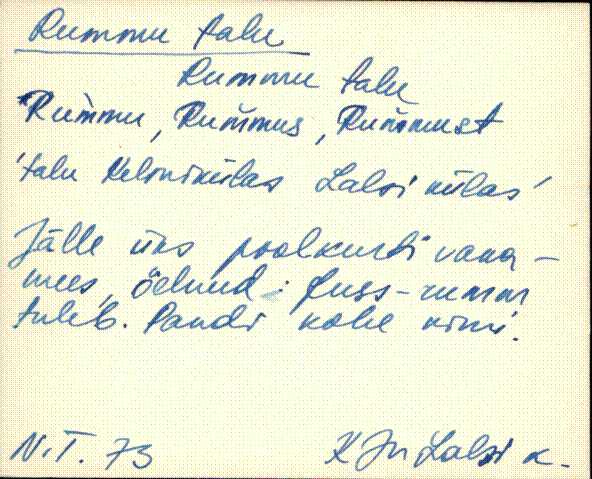 Rummu talu
Rummu talu
Rummu, Rummus, Rummust
'talu Kelnikülas Lalsi külas'
Jälle üks poolkurdi vana-
mees, öelnud: Juss-rumm
tuleb. Pandi kohe nimi.
N.T. 73 K Jn Lalsi k.